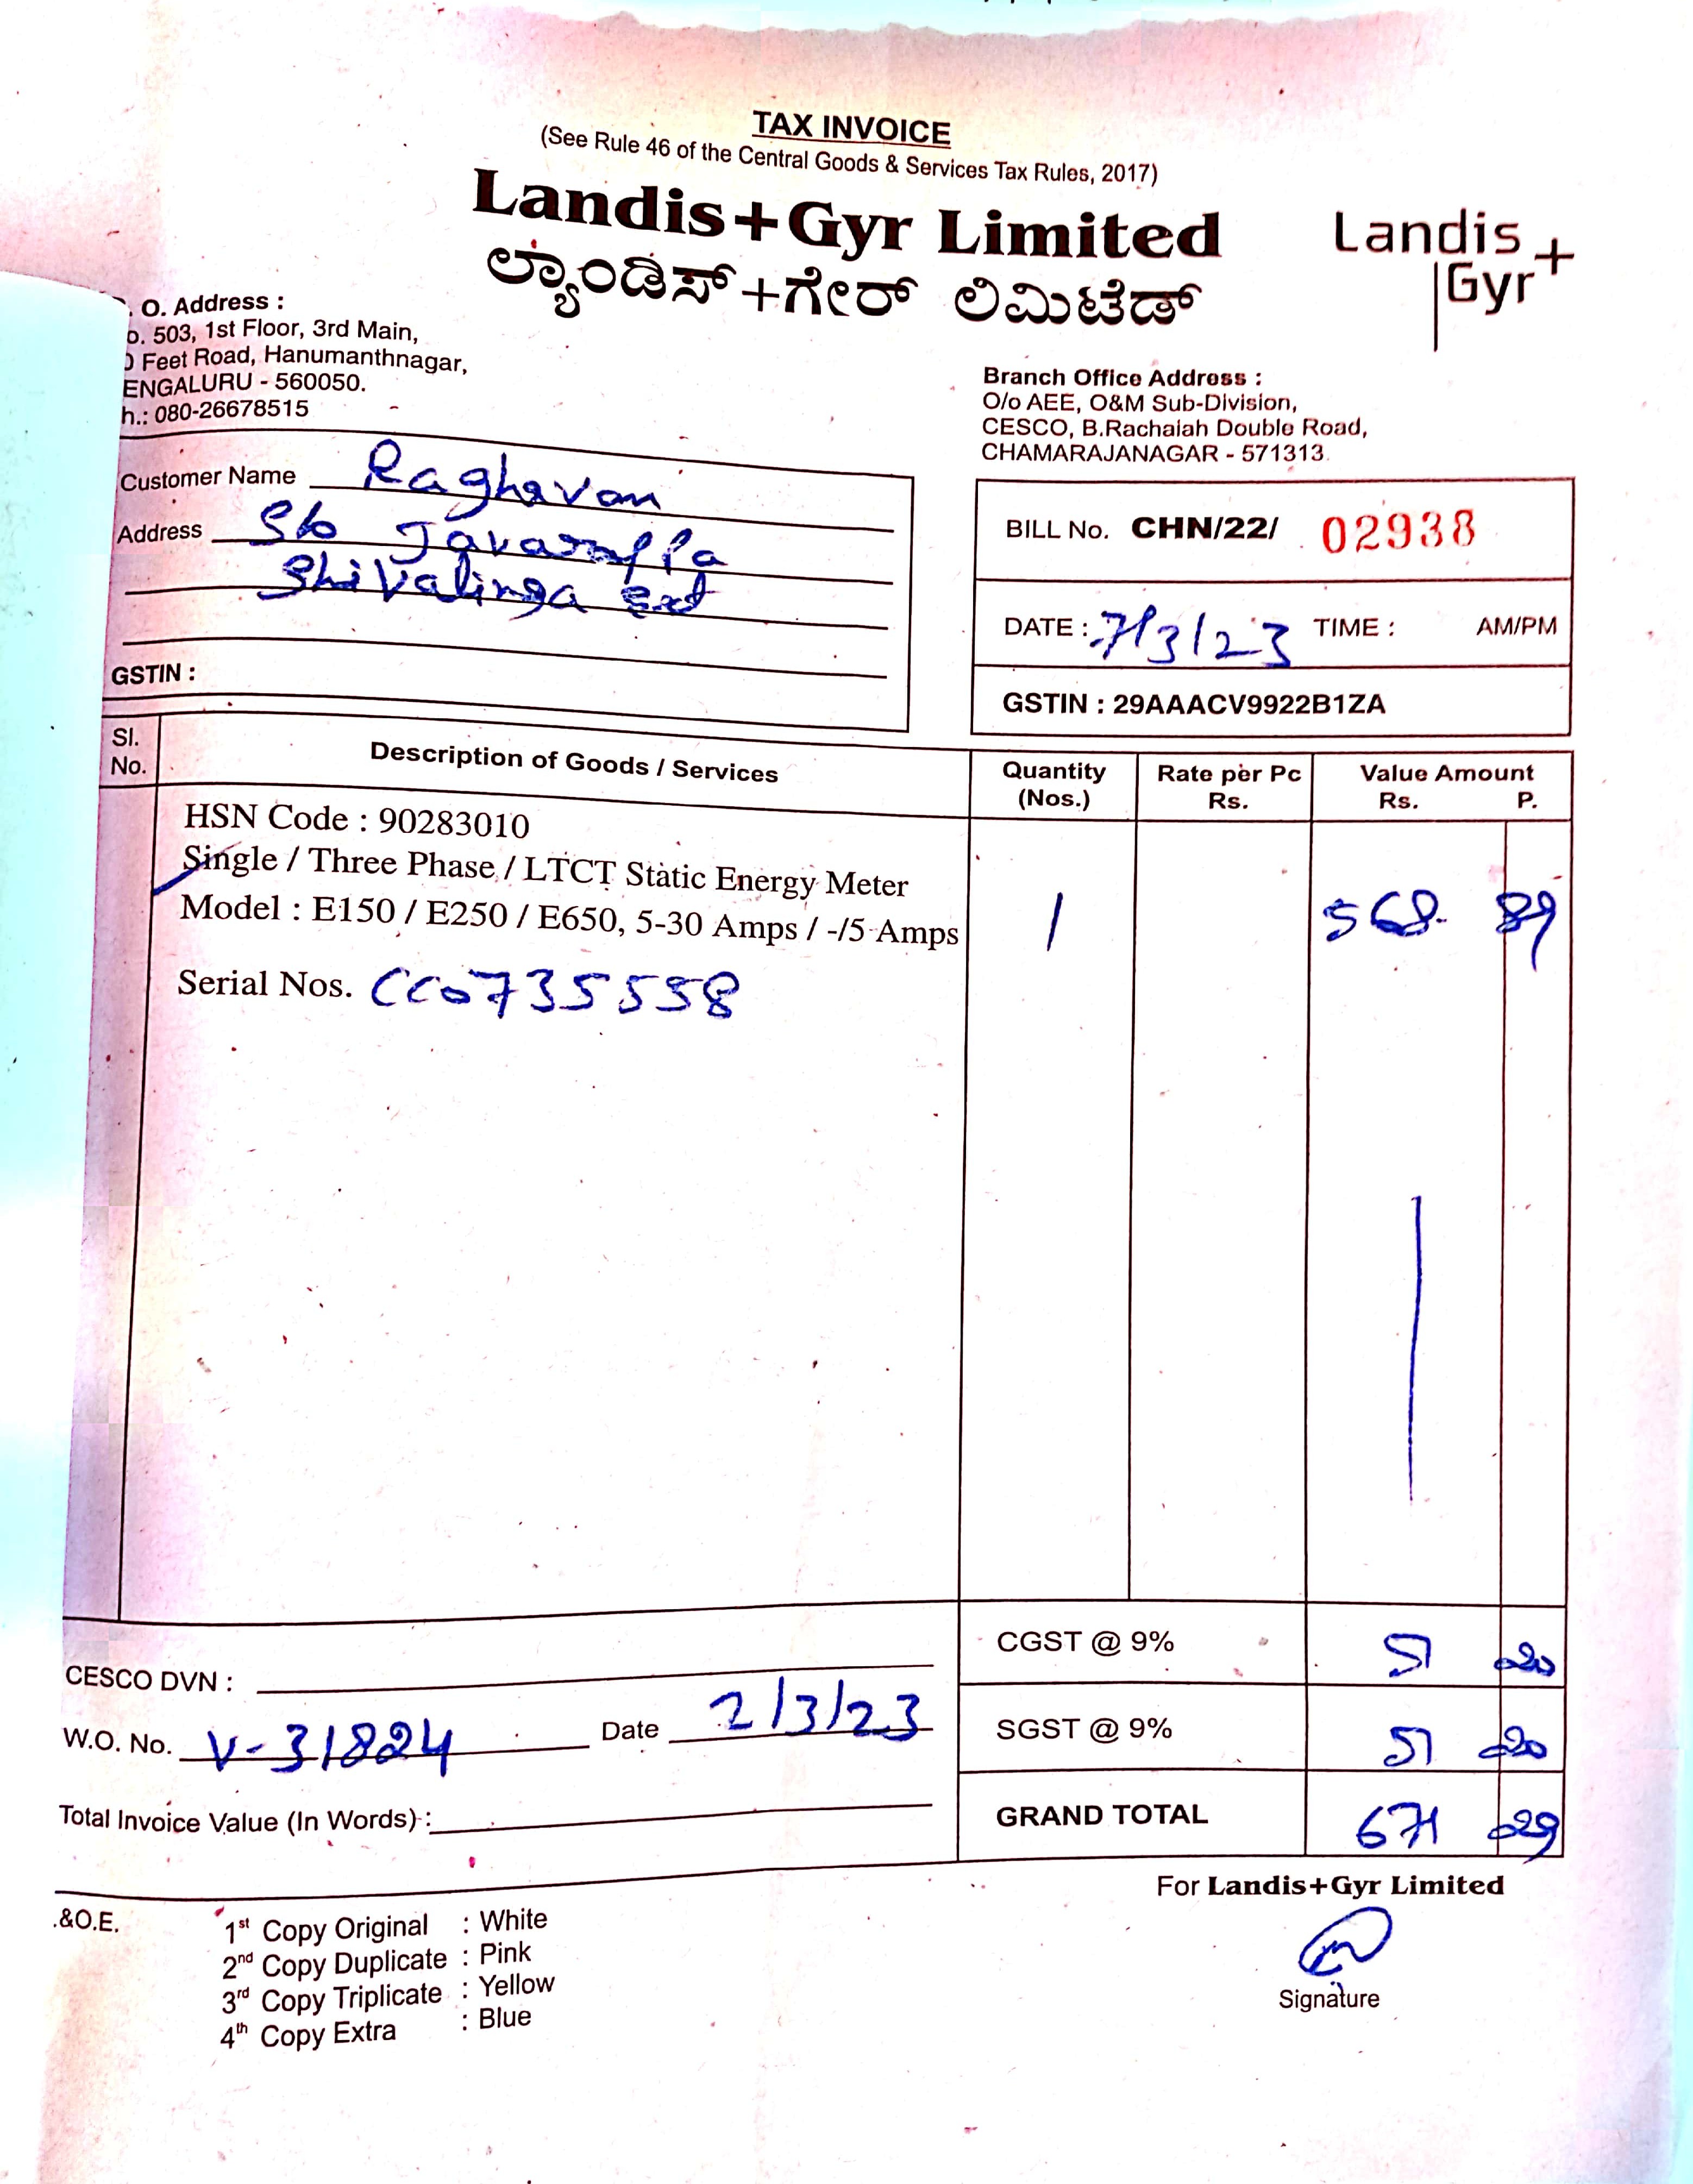 TAX INVOICE
(See Rule 46 of the Central Goods & Services Tax Rules, 2017)
Landis+Gyr Limited
ಲ್ಯಾಂಡಿಸ್+ಗೇರ್ ಲಿಮಿಟೆಡ್
Landis+
Gyr
. O. Address :
o. 503, 1st Floor, 3rd Main,
0 Feet Road, Hanumanthnagar,
ENGALURU - 560050.
h.: 080-26678515
Branch Office Address :
O/o AEE, O&M Sub-Division,
CESCO, B.Rachaiah Double Road,
CHAMARAJANAGAR - 571313.
Customer Name Raghavan
Address S/o Javarappa
Shivalinga Ext
GSTIN :
BILL No. CHN/22/ 02938
DATE : 7/3/23 TIME : AM/PM
GSTIN : 29AAACV9922B1ZA
Sl. No. Description of Goods / Services Quantity (Nos.) Rate per Pc Rs. Value Amount Rs. P.
HSN Code : 90283010
Single / Three Phase / LTCT Static Energy Meter
Model : E150 / E250 / E650, 5-30 Amps / -/5 Amps 1 568 89
Serial Nos. CC0735558
CGST @ 9% 51 20
CESCO DVN :
W.O. No. V-31824 Date 2/3/23
SGST @ 9% 51 20
Total Invoice Value (In Words) :
GRAND TOTAL 671 29
For Landis+Gyr Limited
.&O.E.
1st Copy Original : White
2nd Copy Duplicate : Pink
3rd Copy Triplicate : Yellow
4th Copy Extra : Blue
Signature